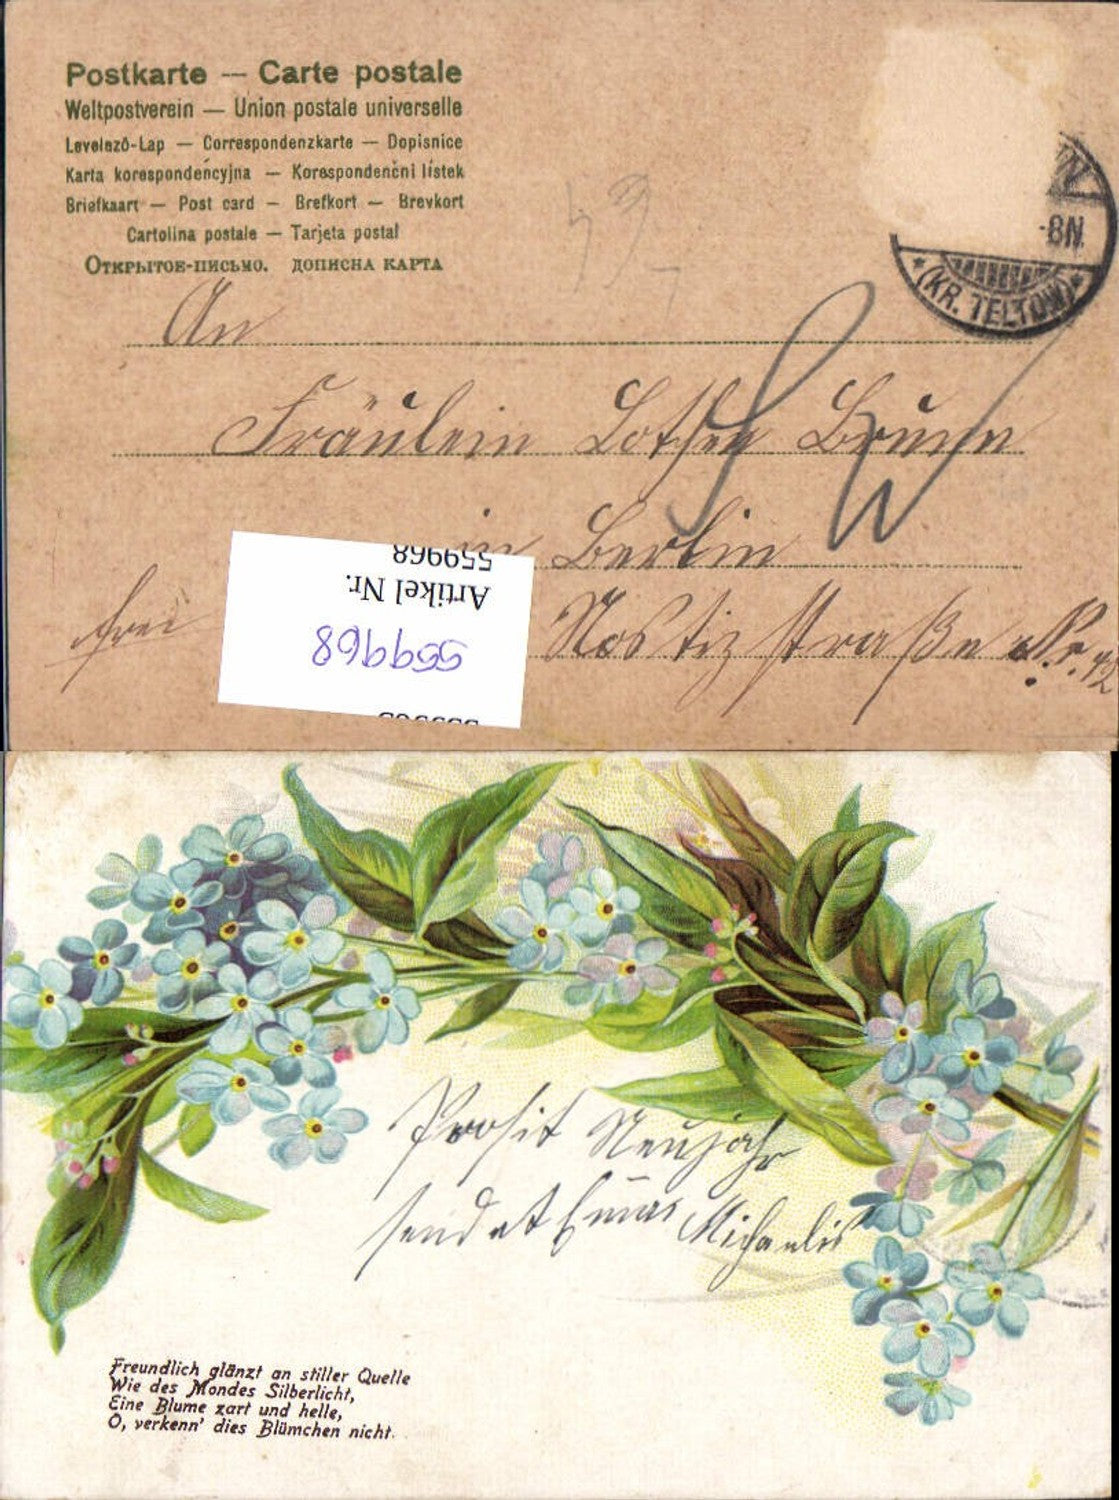 Postkarte — Carte postale
Weltpostverein — Union postale universelle
Levelező-Lap — Correspondenzkarte — Dopisnice
Karta korespondencyjna — Korespondenčni listek
Briefkaart — Post card — Brefkort — Brevkort
Cartolina postale — Tarjeta postal
Открытое-письмо. дописна карта
-8N.
(KR. TELTOW)
An
Fräulein Brunn
in Berlin
frei Nostizstraße Nr. 42
559968
Artikel Nr.
559968
Prosit Neujahr
sendet Michaelis
Freundlich glänzt an stiller Quelle
Wie des Mondes Silberlicht,
Eine Blume zart und helle,
O, verkenn' dies Blümchen nicht.